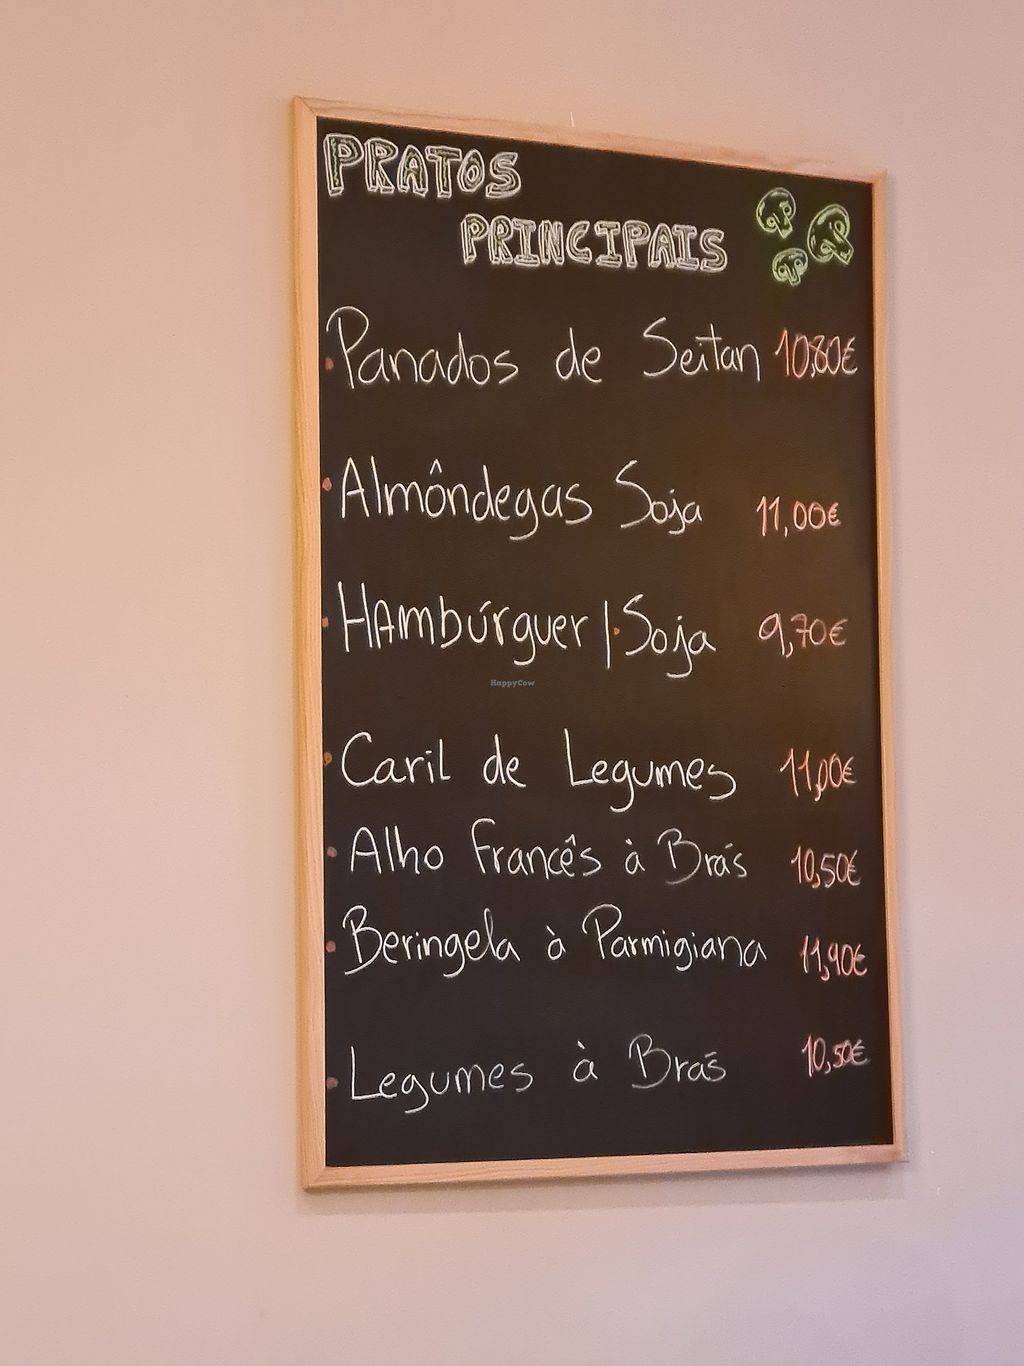 PRATOS
PRINCIPAIS
Panados de Seitan 10,80€
Almôndegas Soja 11,00€
HAmbúrguer | Soja 9,70€
HappyCow
Caril de Legumes 11,00€
Alho Francês à Brás 10,50€
Beringela à Parmigiana 11,90€
Legumes à Brás 10,50€